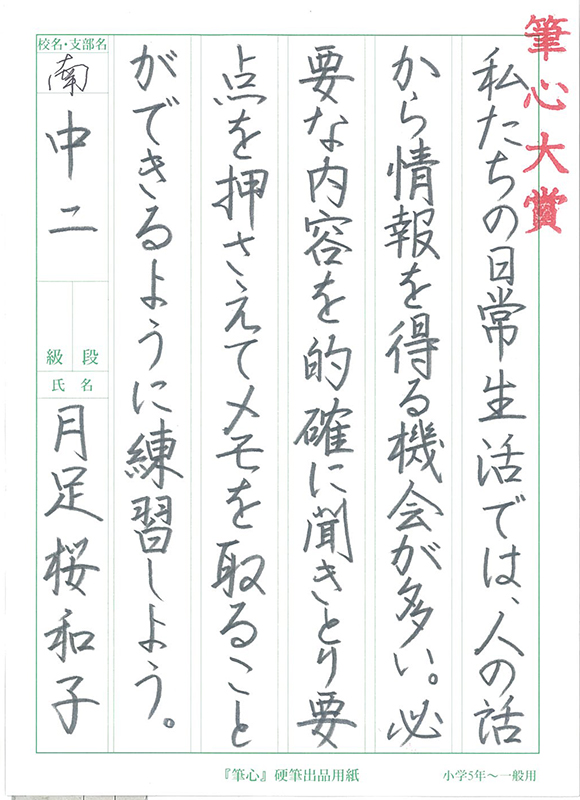 筆心大賞
私たちの日常生活では、人の話
から情報を得る機会が多い。必
要な内容を的確に聞きとり要
点を押さえてメモを取ること
ができるように練習しよう。
校名・支部名
南
中二
級 段
氏名
月足桜和子
『筆心』硬筆出品用紙
小学5年〜一般用